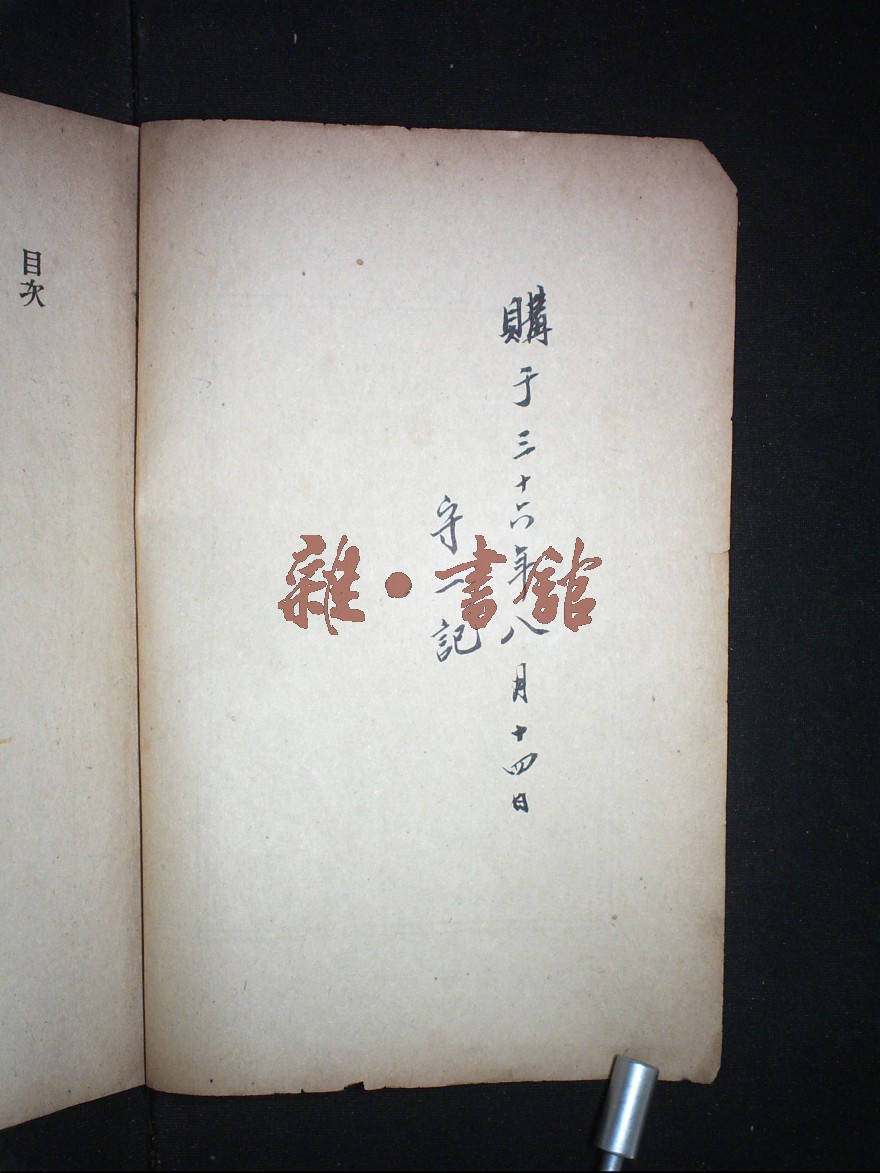 購于三十六年八月十四日
守一記
雜·書館
目次